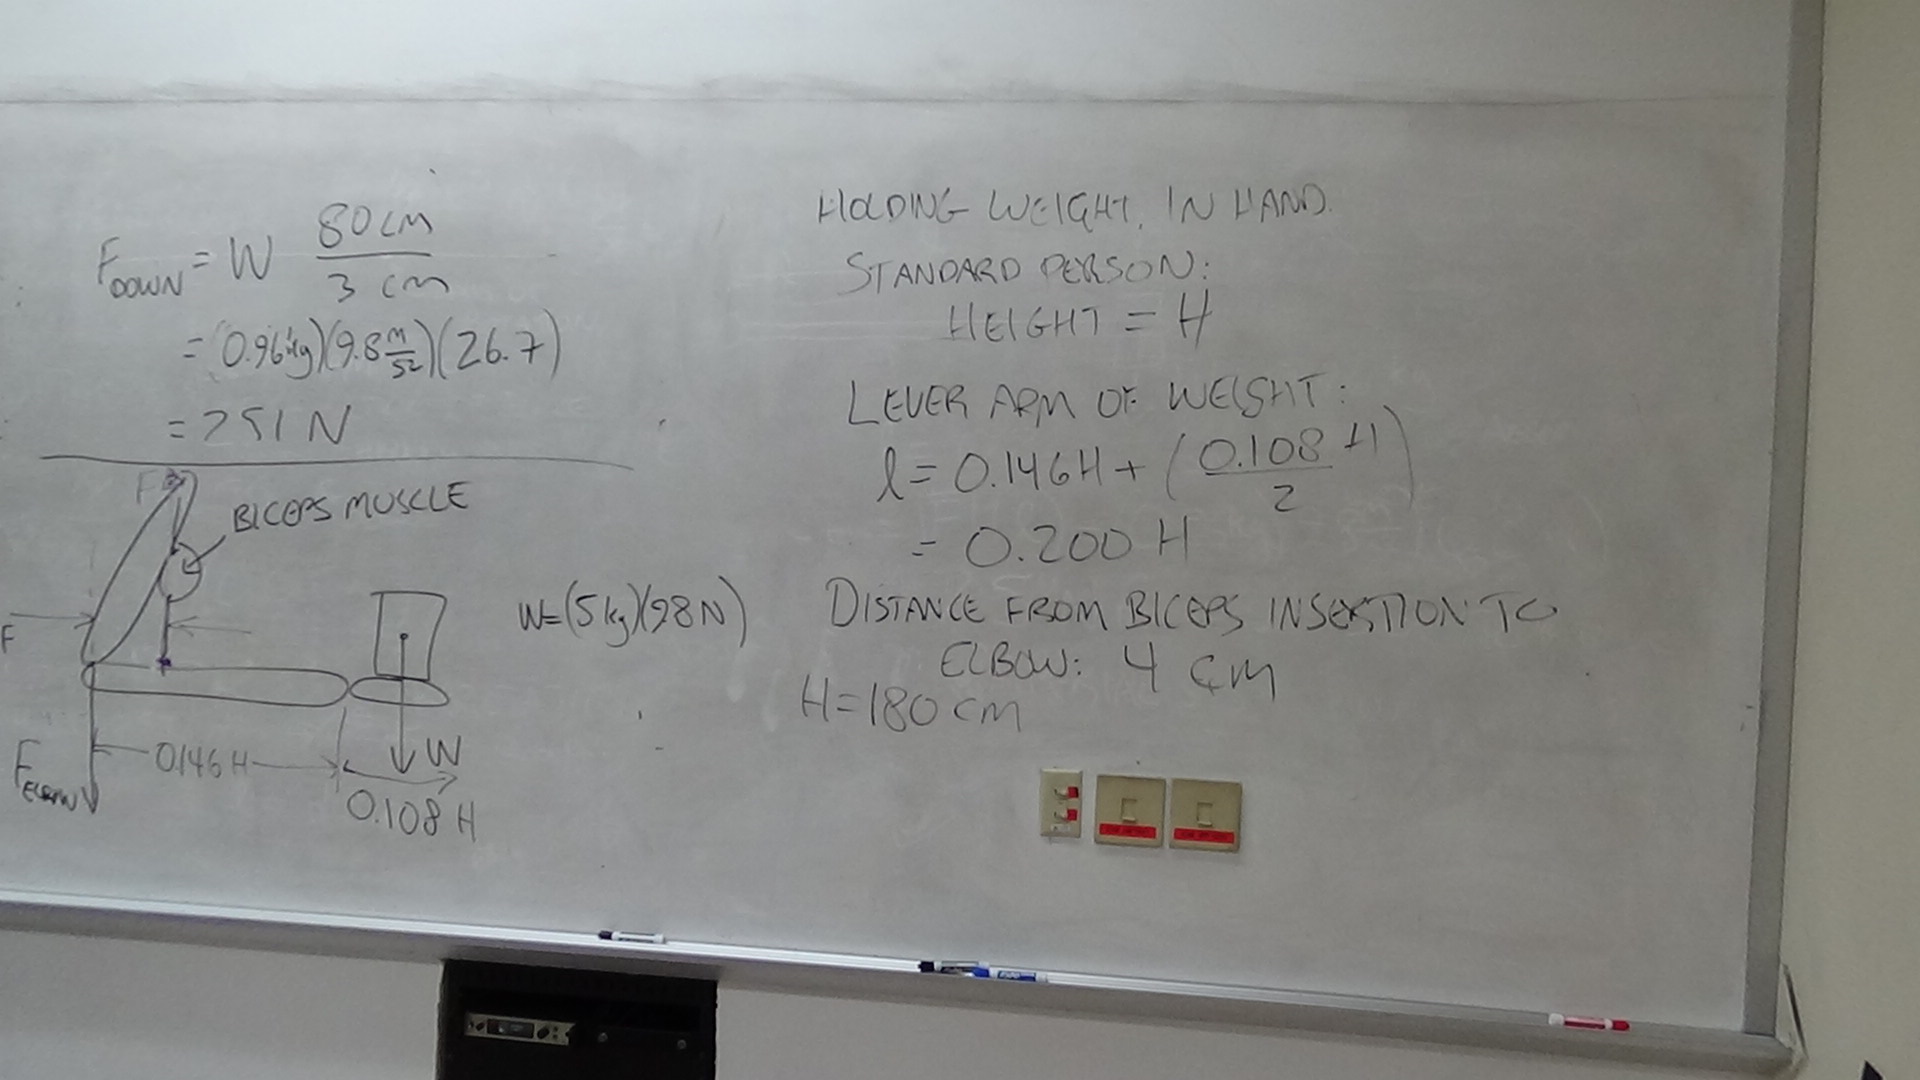 F_DOWN = W 80 cm / 3 cm
= (0.96 kg)(9.8 m/s²)(26.7)
= 251 N
BICEPS MUSCLE
F
W=(5kg)(98N)
F_ELBOW
0.146 H
W
0.108 H
HOLDING WEIGHT IN HAND.
STANDARD PERSON:
HEIGHT = H
LEVER ARM OF WEIGHT:
l = 0.146H + (0.108 H / 2)
= 0.200 H
DISTANCE FROM BICEPS INSERTION TO
ELBOW: 4 cm
H=180 cm